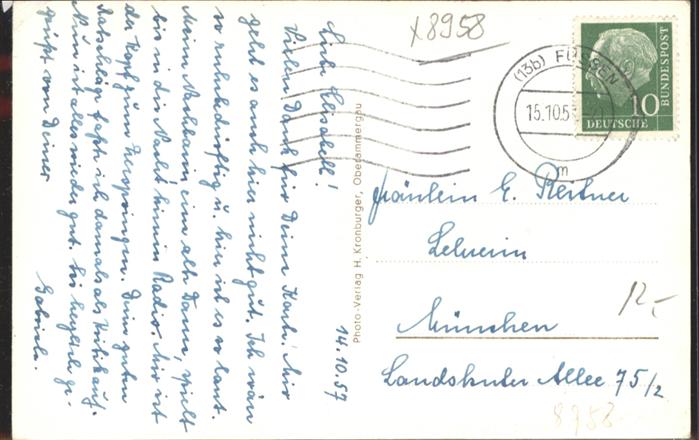 14.10.57
Liebe Elisabeth!
Vielen Dank für Deine Karte. Mir
geht's auch hier nicht gut. Ich wäre
so ruhebedürftig u. hier ist es so laut.
Meine Nachbarin, eine alte Dame, spielt
bis in die Nacht hinein Radio. Mir ist
der Kopf zum Zerspringen. Deine guten
Ratschläge faßte ich damals als Kritik auf.
Nun ist alles wieder gut. Sei herzlich ge-
grüßt von Deiner
Gabriele.
Photo-Verlag H. Kronburger, Oberammergau
x8958
(13b) FÜSSEN
15.10.5
m
10
DEUTSCHE
BUNDESPOST
Fräulein E.
Lehrerin
12,-
München
Landshuter Allee 75/2
8958